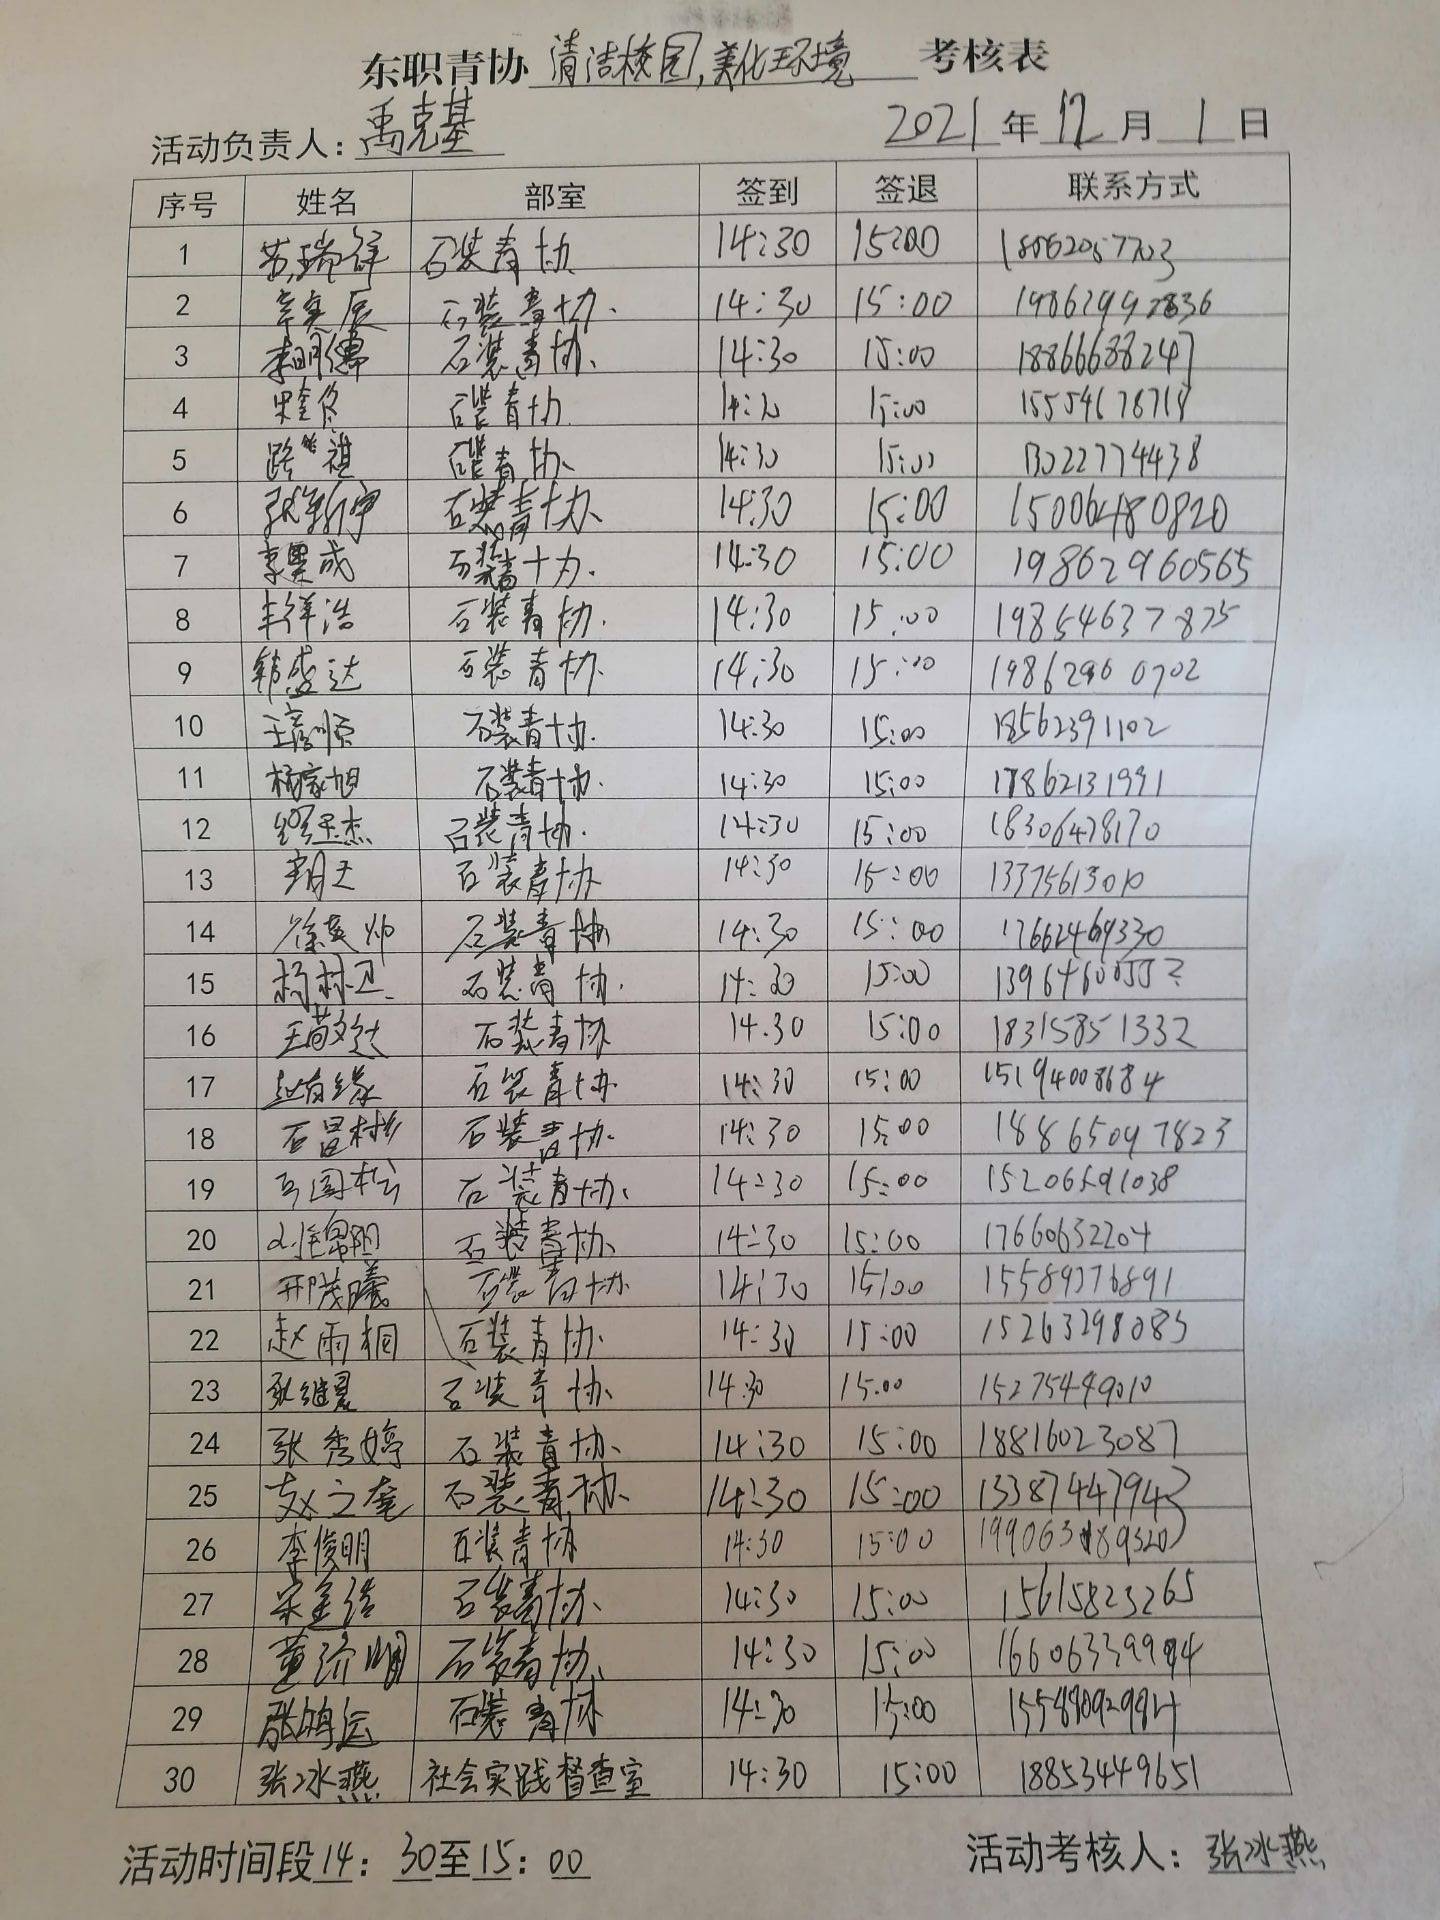 东职青协 清洁校园,美化环境 考核表
活动负责人: 禹克基 2021 年 12 月 1 日
序号 姓名 部室 签到 签退 联系方式
1 苏瑞祥 石装青协 14:30 15:00
2 石装青协. 14:30 15:00 19862992836
3 石装青协. 14:30 15:00 18866688247
4 石装青协 15:00
5 石装青协. 14:30 15:00 13022774438
6 张新宇 石装青协. 14:30 15:00 15006480820
7 李昊成 石装青协. 14:30 15:00 19862960565
8 丰祥浩 石装青协. 14:30 15:00 19854637875
9 韩盛达 石装青协. 14:30 15:00 19862900702
10 王彦顺 石装青协. 14:30 15:00 18562391102
11 杨家旭 石装青协. 14:30 15:00 17862131991
12 石装青协. 14:30 15:00 18306478170
13 石装青协 14:30 15:00 13375613010
14 石装青协 14:30 15:00 17662469330
15 石装青协. 14:30 15:00
16 石装青协 14.30 15:00 18315851332
17 赵有缘 石装青协 14:30 15:00 15194008684
18 石昌彬 石装青协. 14:30 15:00 18865097823
19 石装青协. 14:30 15:00 15206591038
20 石装青协. 14:30 15:00 17660632204
21 邢茂曦 石装青协 14:30 15:00 15589376891
22 赵雨桐 石装青协. 14:30 15:00 15263298085
23 石装青协. 14:30 15:00 15275449010
24 张秀婷 石装青协. 14:30 15:00 18816023087
25 赵之奎 石装青协. 14:30 15:00 13387447943
26 李俊明 石装青协 14:30 15:00
27 石装青协. 14:30 15:00 15615823265
28 董济明 石装青协. 14:30 15:00 16606339994
29 张鸿运 石装青协 14:30 15:00
30 张冰燕 社会实践督查室 14:30 15:00 18853449651
活动时间段 14: 30 至 15: 00 活动考核人: 张冰燕